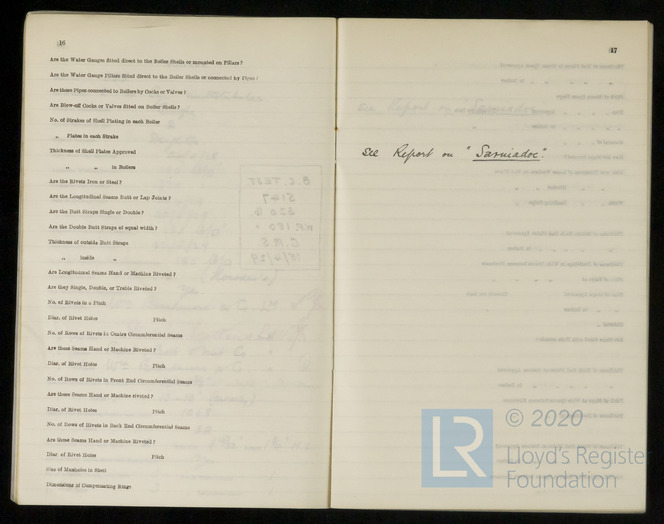 16
Are the Water Gauges fitted direct to the Boiler Shells or mounted on Pillars?
Are the Water Gauge Pillars fitted direct to the Boiler Shells or connected by Pipes?
Are these Pipes connected to Boilers by Cocks or Valves?
Are Blow-off Cocks or Valves fitted on Boiler Shells?
No. of Strakes of Shell Plating in each Boiler
„ Plates in each Strake
Thickness of Shell Plates Approved
„ „ in Boilers
Are the Rivets Iron or Steel?
Are the Longitudinal Seams Butt or Lap Joints?
Are the Butt Straps Single or Double?
Are the Double Butt Straps of equal width?
Thickness of outside Butt Straps
„ inside „
Are Longitudinal Seams Hand or Machine Riveted?
Are they Single, Double, or Treble Riveted?
No. of Rivets in a Pitch
Diar. of Rivet Holes Pitch
No. of Rows of Rivets in Centre Circumferential Seams
Are these Seams Hand or Machine Riveted?
Diar. of Rivet Holes Pitch
No. of Rows of Rivets in Front End Circumferential Seams
Are these Seams Hand or Machine riveted?
Diar. of Rivet Holes Pitch
No. of Rows of Rivets in Back End Circumferential Seams
Are these Seams Hand or Machine Riveted?
Diar. of Rivet Holes Pitch
Size of Manholes in Shell
Dimensions of Compensating Rings
17
See Report on "Sarniadoc".
LR
© 2020
Lloyd's Register
Foundation